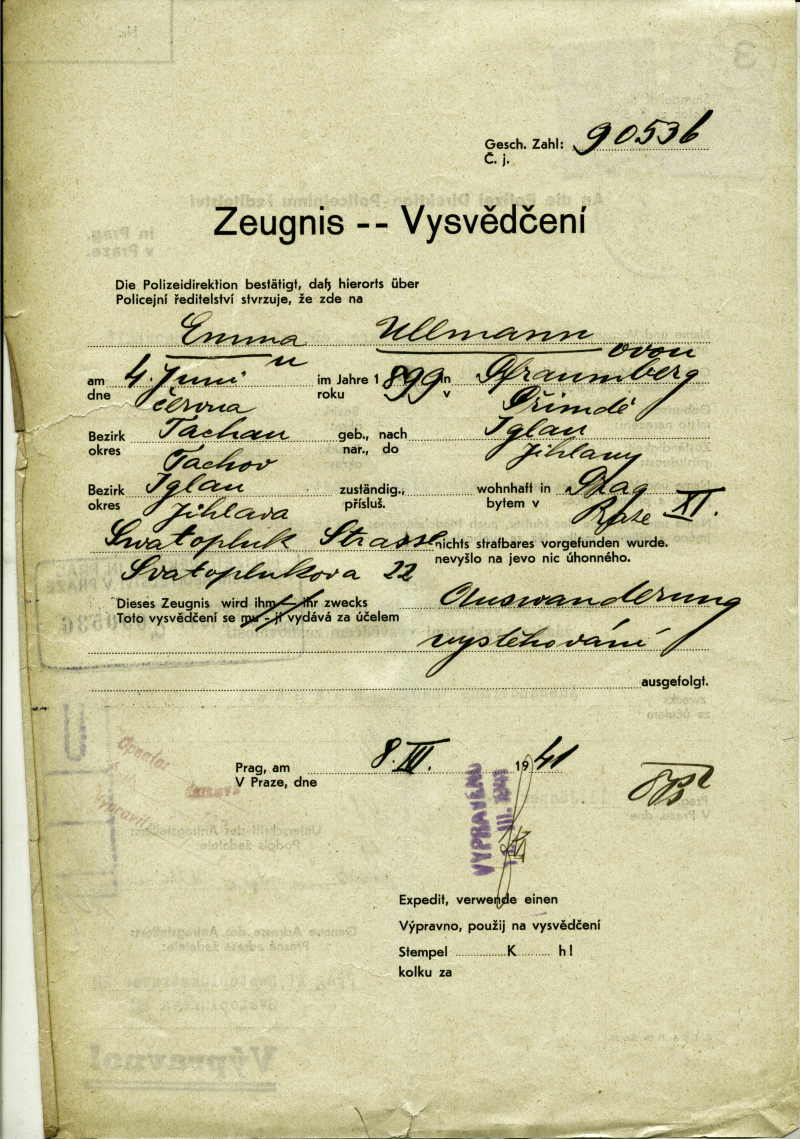 Gesch. Zahl: 90536
Č. j.
Zeugnis -- Vysvědčení
Die Polizeidirektion bestätigt, daß hierorts über
Policejní ředitelství stvrzuje, že zde na
Emma Ullmann
u ovou
am 4. Juni im Jahre 1899 in Pfraumberg
dne června roku v Přimdě
Bezirk Tachau geb., nach Iglau
okres Tachov nar., do Jihlavy
Bezirk Iglau zuständig., wohnhaft in Prag
okres Jihlava přísluš. bytem v Praze XI.
Swatopluk Strasse nichts strafbares vorgefunden wurde.
nevyšlo na jevo nic úhonného.
Svatoplukova 22
Dieses Zeugnis wird ihm - ihr zwecks Auswanderung
Toto vysvědčení se mu - jí vydává za účelem
vystěhování
ausgefolgt.
Prag, am 8. III. 1941
V Praze, dne
VYPRAVENO
III. 1941
Expedit, verwende einen
Výpravno, použij na vysvědčení
Stempel K h!
kolku za